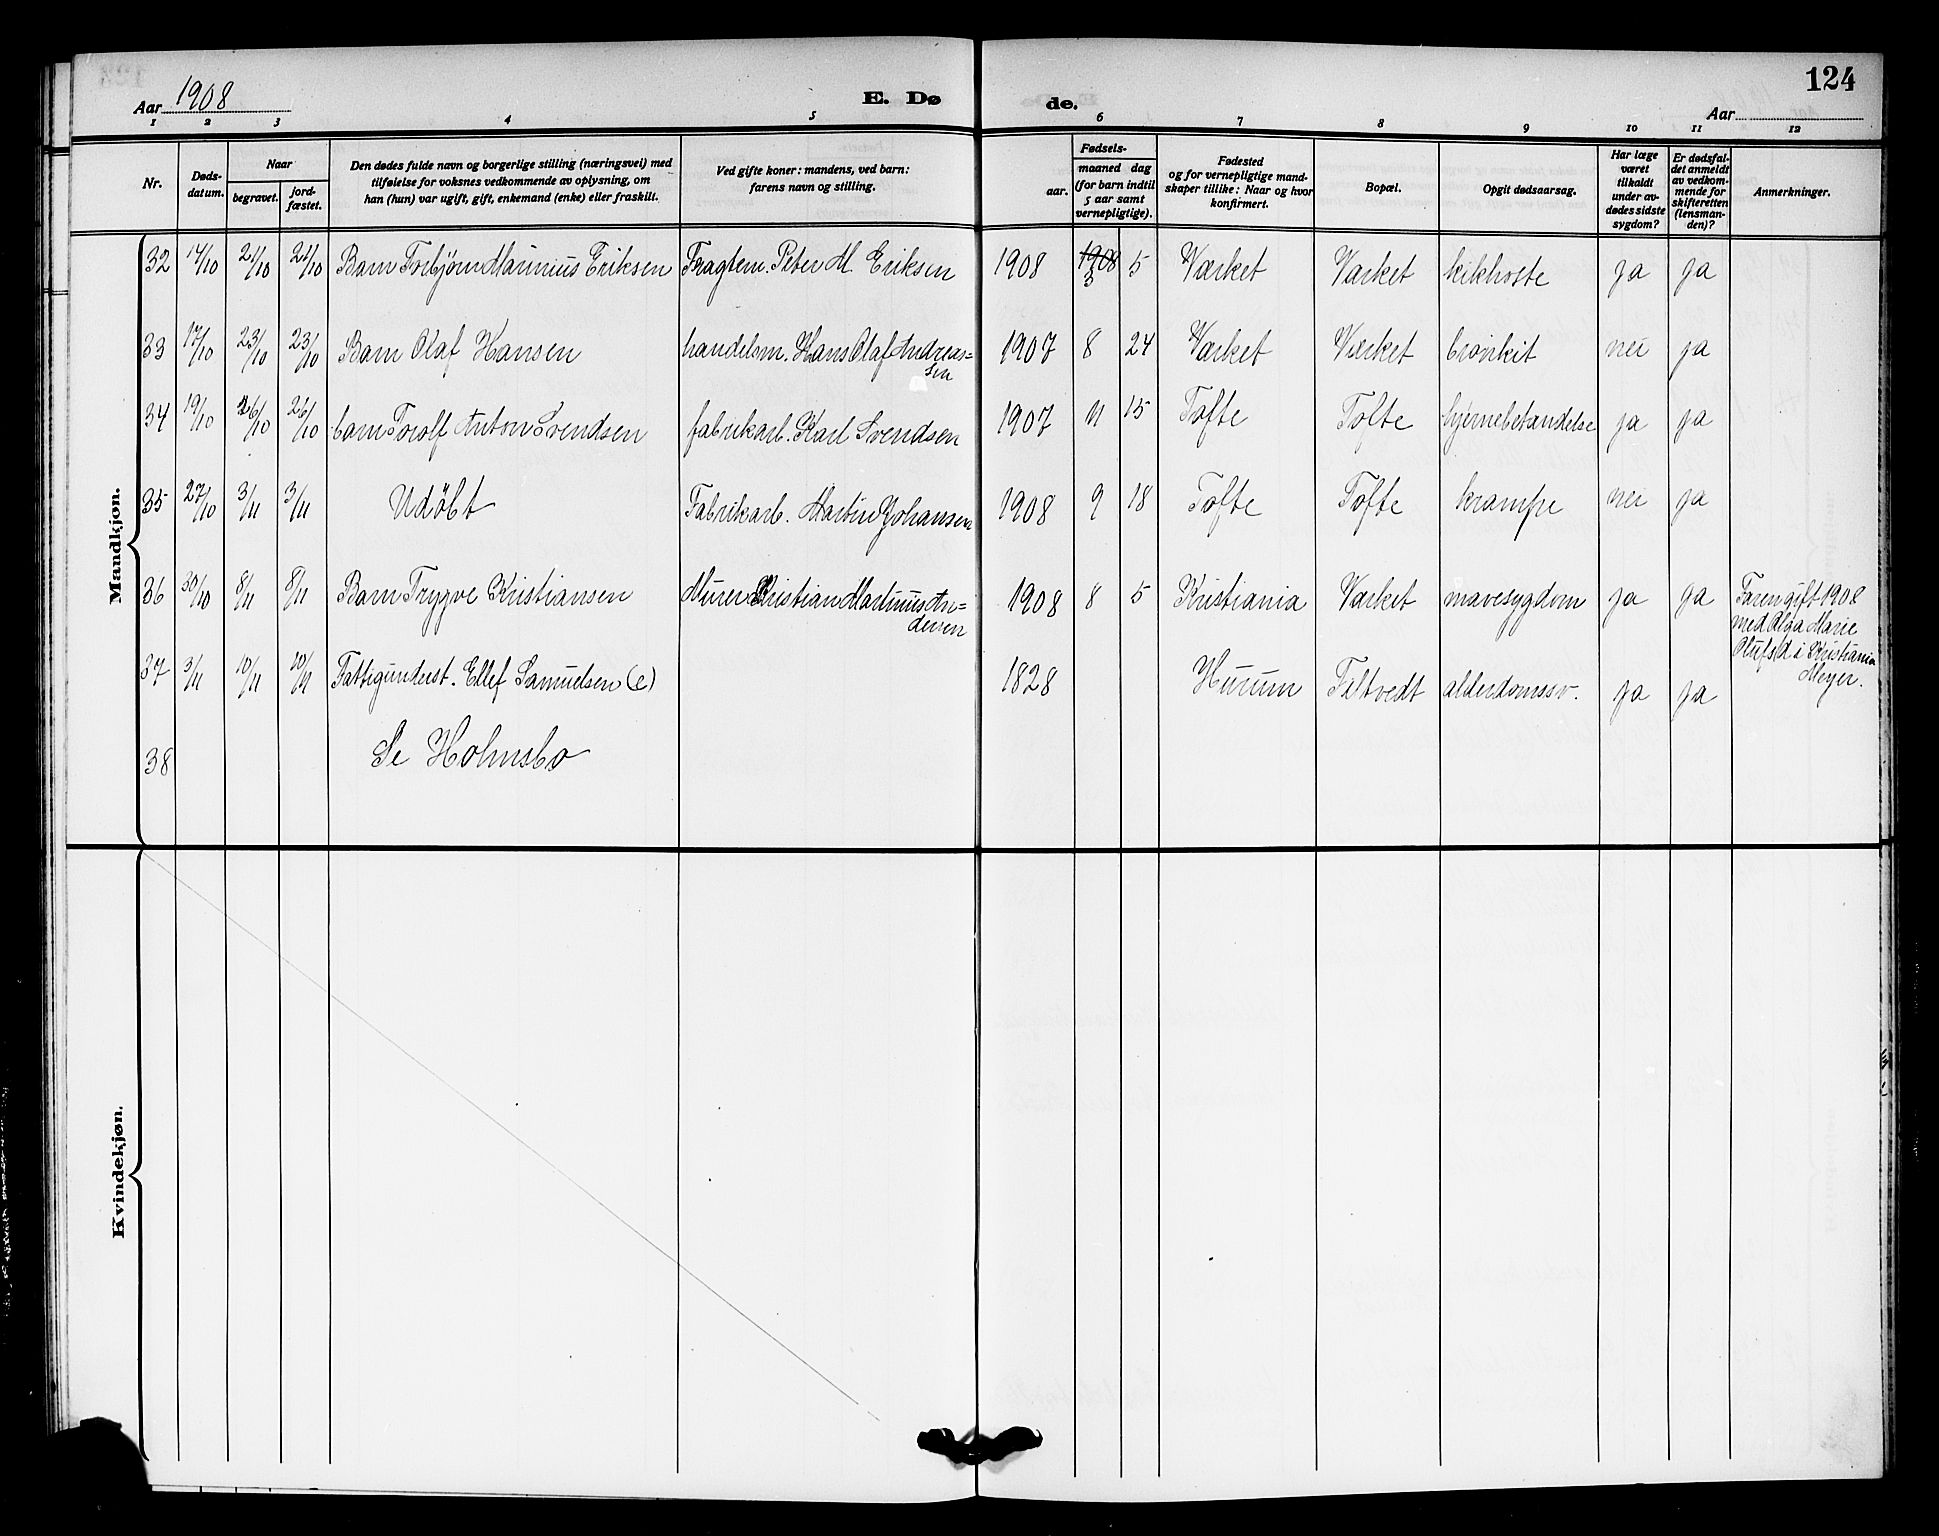 124
Aar 1908
E. Dø de.
Aar
1 2 3 4 5 6 7 8 9 10 11 12
Nr.
Døds-
datum.
Naar
begravet.
jord-
fæstet.
Den dødes fulde navn og borgerlige stilling (næringsvei) med
tilføielse for voksnes vedkommende av oplysning, om
han (hun) var ugift, gift, enkemand (enke) eller fraskilt.
Ved gifte koner: mandens, ved barn:
farens navn og stilling.
Fødsels-
aar.
maaned dag
(for barn indtil
5 aar samt
vernepligtige).
Fødested
og for vernepligtige mand-
skaper tillike: Naar og hvor
konfirmert.
Bopæl.
Opgit dødsaarsag.
Har læge
været
tilkaldt
under av-
dødes sidste
sygdom?
Er dødsfal-
det anmeldt
av vedkom-
mende for
skifteretten
(lensman-
den)?
Anmerkninger.
Mandkjøn.
32 14/10 21/10 21/10 Barn Torbjørn Marinius Eriksen Fragtem. Peter M. Eriksen 1908 1908 5 Værket Værket kikhoste ja ja
3
33 17/10 23/10 23/10 Barn Olaf Hansen handelsm. Hans Olaf Andreas=
sen 1907 8 24 Værket Værket bronkit nei ja
34 19/10 26/10 26/10 barn Torolf Anton Svendsen fabrikarb. Karl Svendsen 1907 11 15 Tofte Tofte hjernebetændelse ja ja
35 27/10 3/11 3/11 Udöbt Fabrikarb. Martin Johansen 1908 9 18 Tofte Tofte krampe nei ja
36 30/10 8/11 8/11 Barn Trygve Kristiansen Murer Kristian Martinius An=
dersen 1908 8 5 Kristiania Værket mavesygdom ja ja Faren gift 1908
med Olga Marie
Olufsd i Kristiania
Meyer.
37 3/11 10/11 10/11 Fattigunderst. Ellef Samuelsen (e) 1828 Hurum Filtvedt alderdomssv. ja ja
38 Se Holmsbo
Kvindekjøn.